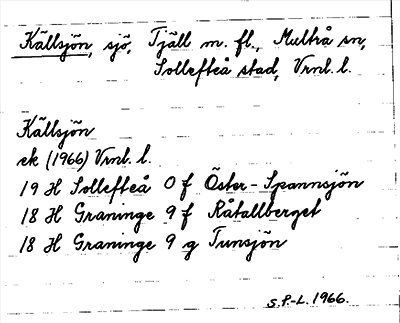 Källsjön, sjö, Tjäll m. fl., Multrå sn,
Sollefteå stad, Vrnl. l.
Källsjön
ek (1966) Vrnl. l.
19 H Sollefteå 0 f Öster-Spannsjön
18 H Graninge 9 f Råtallberget
18 H Graninge 9 g Tunsjön
S.P.-L. 1966.